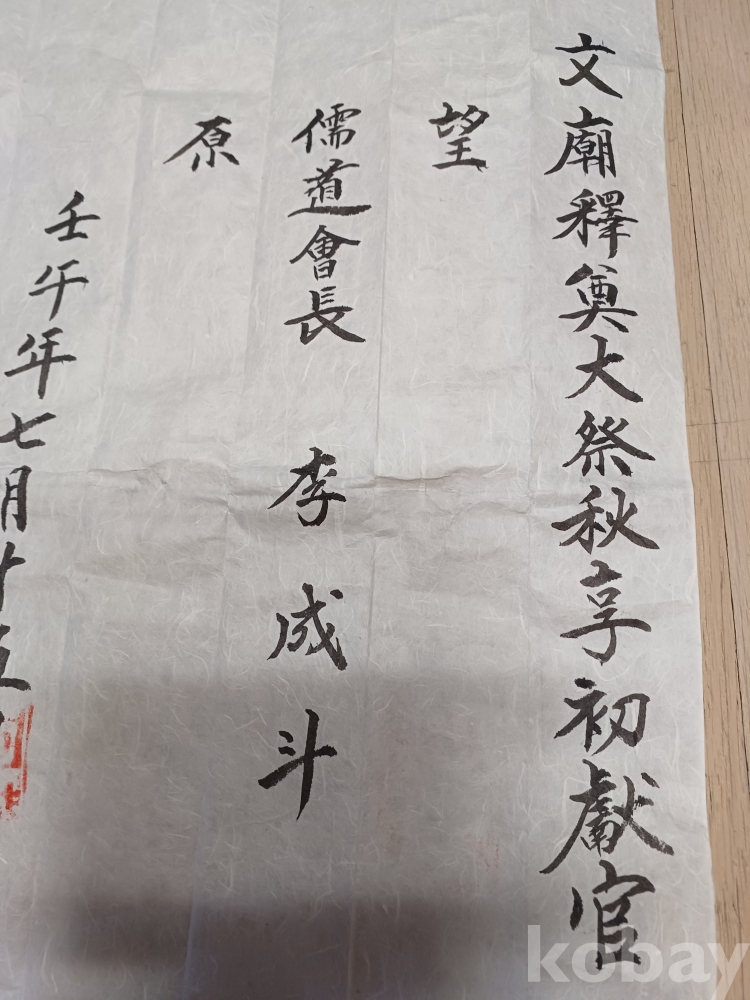 文廟釋奠大祭秋享初獻官
望
儒道會長 李成斗
原
壬午年七月廿五
kobay